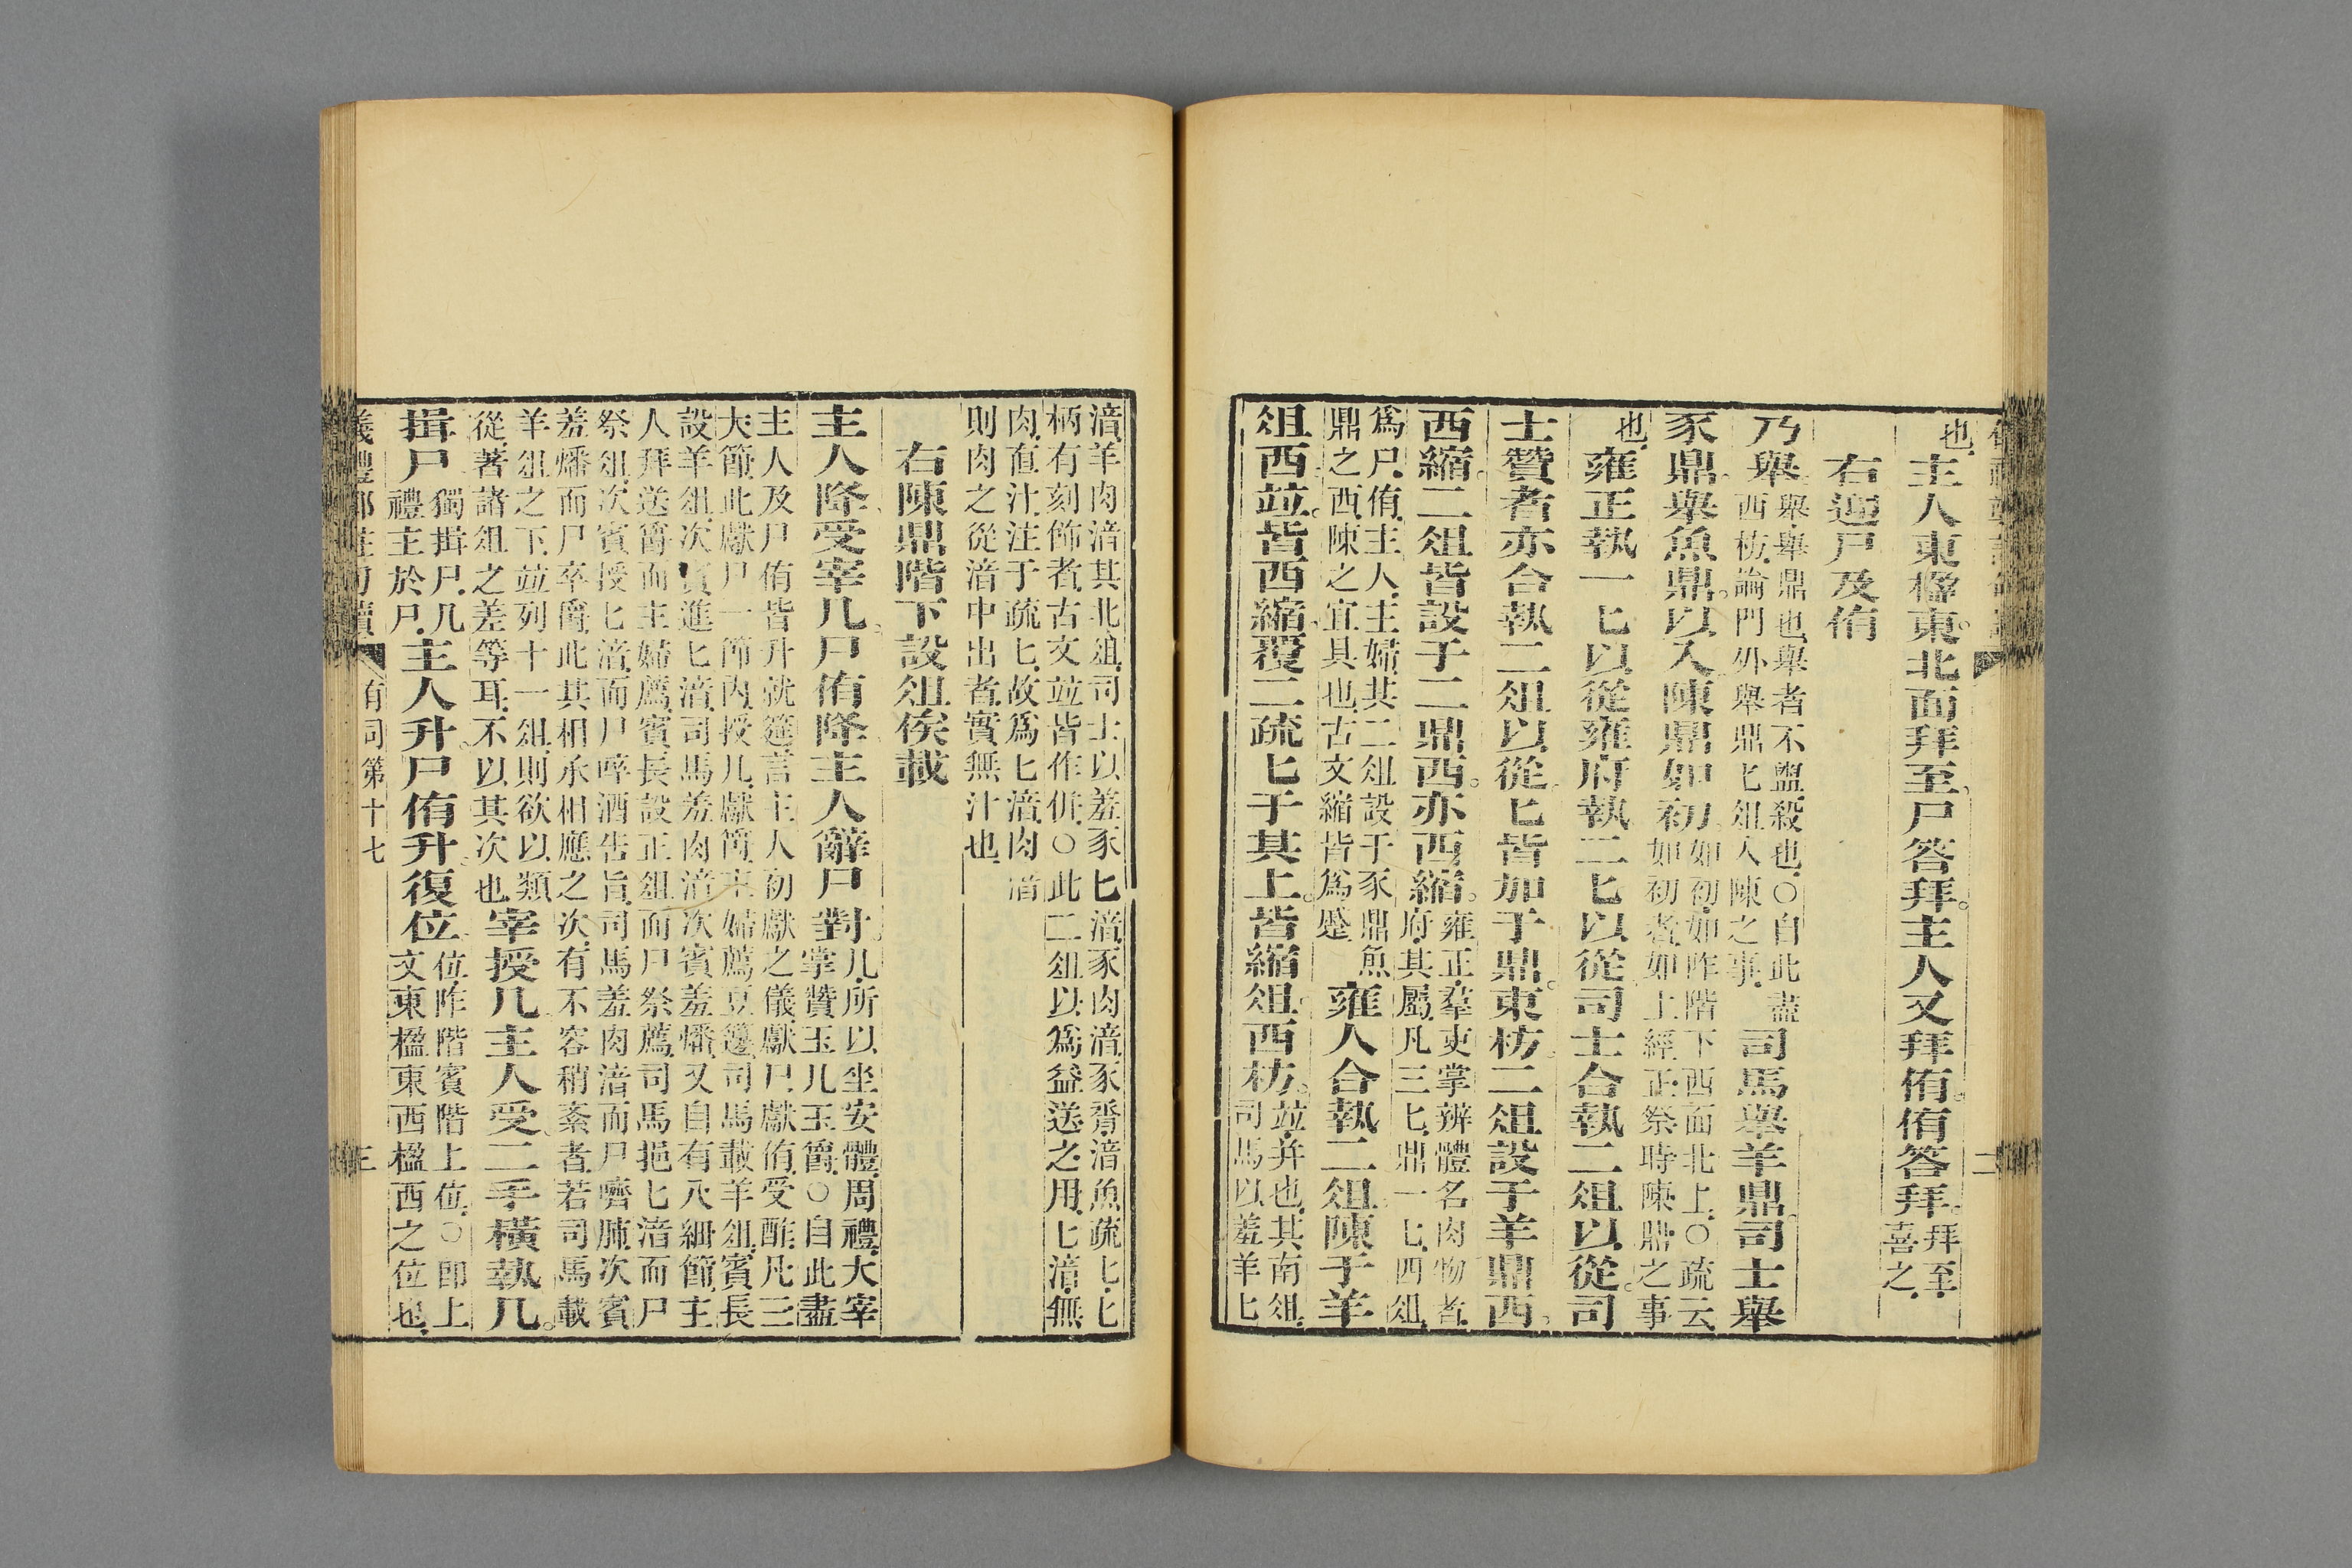 也主人東楹東北面拜至尸答拜主人又拜侑侑答拜拜至
喜之
右迎尸及侑
乃舉舉舉鼎也舉者不盥殺也○自此盡
西枋論門外舉鼎匕俎入陳之事司馬舉羊鼎司士舉
豕鼎舉魚鼎以入陳鼎如初如初如阼階下西面北上○疏云
如初者如上經正祭時陳鼎之事
也雍正執一匕以從雍府執二匕以從司士合執二俎以從司
士贊者亦合執二俎以從匕皆加于鼎東枋二俎設于羊鼎西
西縮二俎皆設于二鼎西亦西縮雍正羣吏掌辨體名肉物者
府其屬凡三匕鼎一匕四俎
爲尸侑主人主婦其二俎設于豕鼎魚
鼎之西陳之宜具也古文縮皆爲蹙雍人合執二俎陳于羊
俎西竝皆西縮覆二疏匕于其上皆縮俎西枋竝并也其南俎
司馬以羞羊匕
湇羊肉湇其北俎司士以羞豕匕湇豕肉湇豕脀湇魚疏匕匕
柄有刻飾者古文竝皆作併○此二俎以爲益送之用匕湇無
肉直汁注于疏匕故爲匕湇肉湇
則肉之從湇中出者實無汁也
右陳鼎階下設俎俟載
主人降受宰几尸侑降主人辭尸對几所以坐安體周禮大宰
掌贊玉几玉爵○自此盡
主人及尸侑皆升就筵言主人初獻之儀獻尸獻侑受酢凡三
大節此獻尸一節內授几獻爵主婦薦豆籩司馬載羊俎賓長
設羊俎次賓進匕湇司馬羞肉湇次賓羞燔又自有八細節主
人拜送爵而主婦薦賓長設正俎而尸祭薦司馬挹匕湇而尸
祭俎次賓授匕湇而尸啐酒告旨司馬羞肉湇而尸嚌肺次賓
羞燔而尸卒爵此其相承相應之次有不容稍紊者若司馬載
羊俎之下竝列十一俎則欲以類
從著諸俎之差等耳不以其次也宰授几主人受二手橫執几
揖尸獨揖尸几
禮主於尸主人升尸侑升復位位阼階賓階上位○卽上
文東楹東西楹西之位也
有司第十七
三